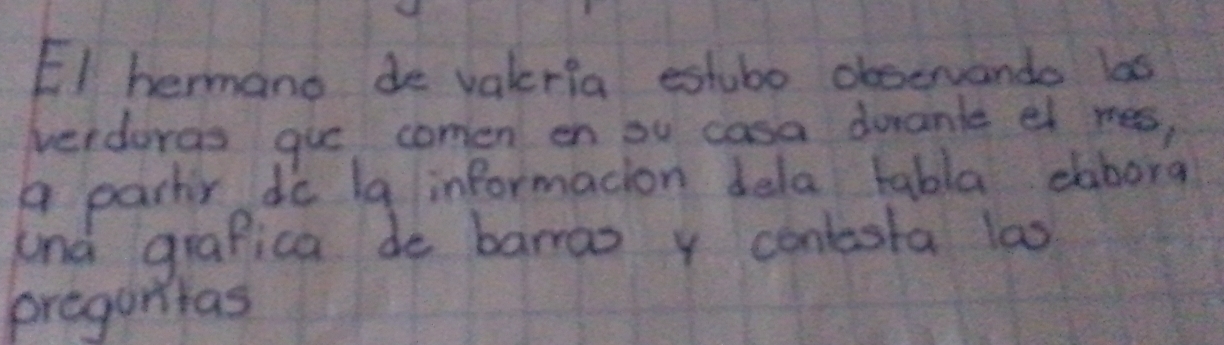 El hermano de valeria estubo observando las
verduras que comen en su casa durante el mes,
a partir de la informacion dela tabla elabora
una grafica de barras y contesta las
preguntas